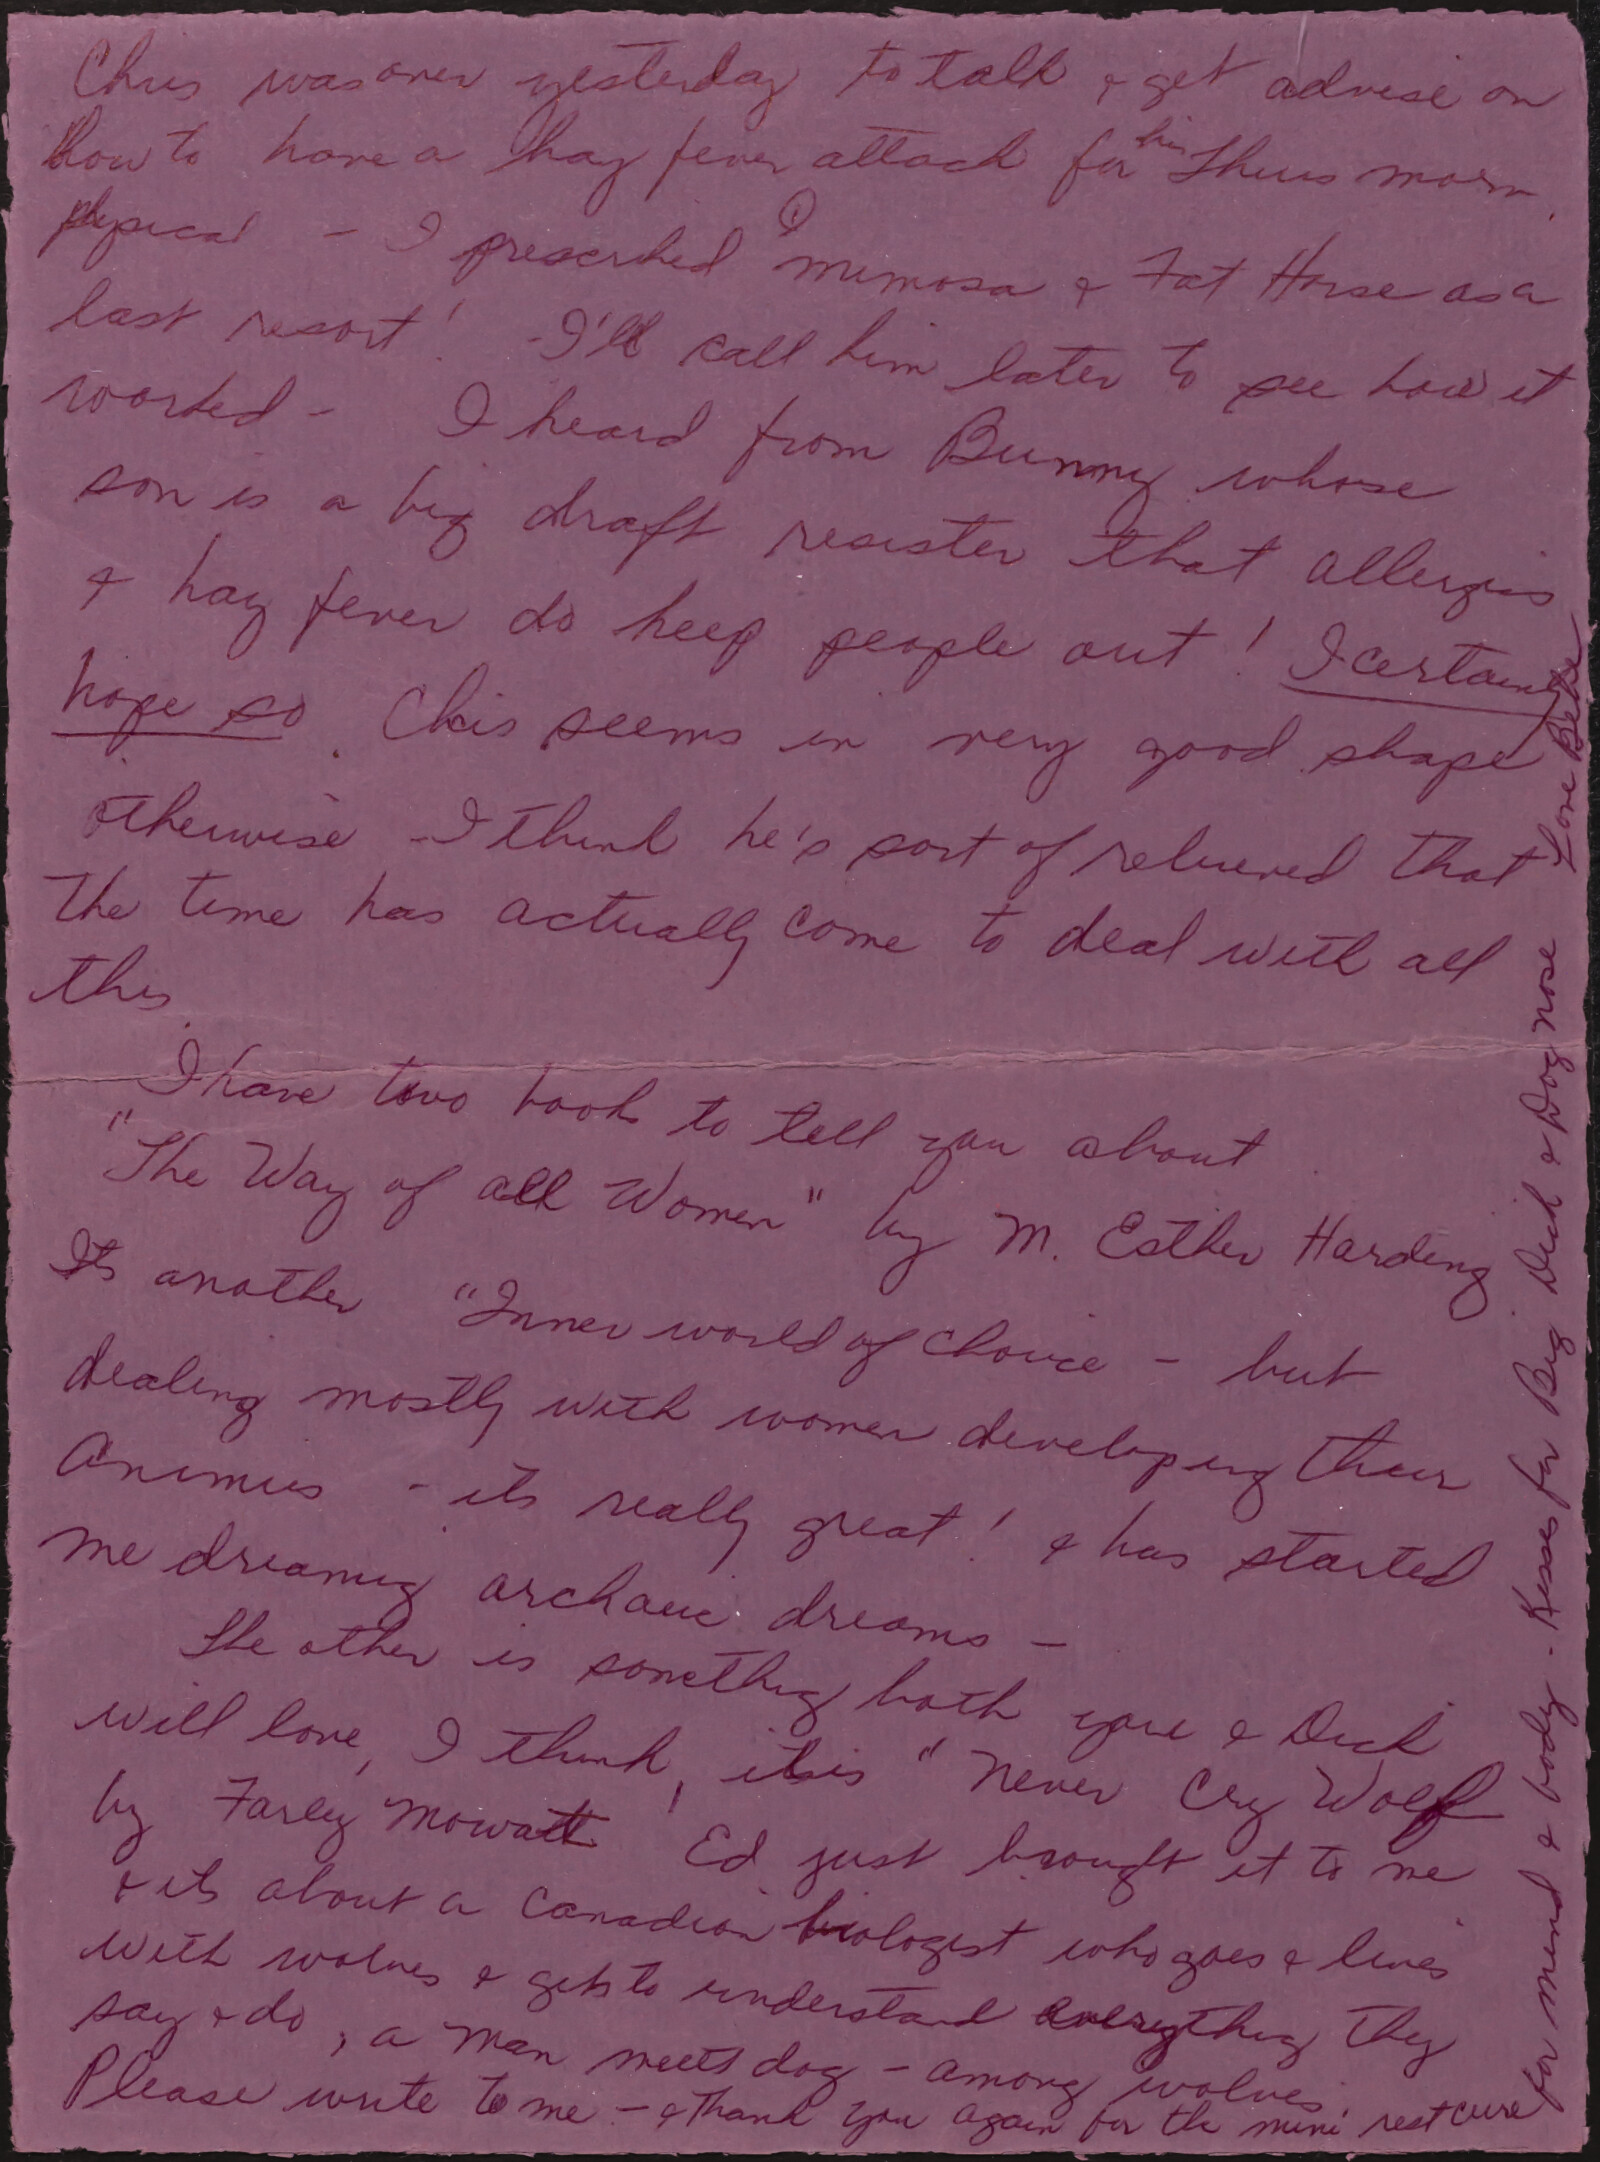 Chris was over yesterday to talk & get advise on
how to have a hay fever attack for his Thurs morn.
physical - I prescribed mimosa & Fat Horse as a
last resort! - I'll call him later to see how it
worked - I heard from Bunny whose
son is a big draft resister that allergies
& hay fever do keep people out! I certainly
hope so. Chris seems in very good shape
otherwise - I think he's sort of relieved that
the time has actually come to deal with all
this.
I have two book to tell you about
"The Way of all Women" by M. Esther Harding
Its another "Inner world of choice - but
dealing mostly with women developing their
Animus - its really great! & has started
me dreaming archaic dreams -
The other is something both you & Dick
will love, I think, it is "Never Cry Wolf
by Farley Mowatt Ed just brought it to me
& its about a Canadian biologist who goes & lives
with wolves & gets to understand everything they
say & do, a man meets dog - among wolves.
Please write to me - & thank you again for the mini rest cure
for mind & body - Kisses for Big Dick & Dog nose Love Bebe